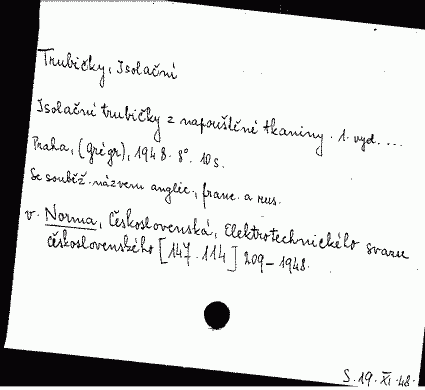 Trubičky, Isolační
Isolační trubičky z napouštěné tkaniny. 1. vyd. ...
Praha, (Grégr), 1948. 8°. 10 s.
Se souběž. názvem anglic., franc. a rus.
v. Norma, Československá, Elektrotechnického svazu
československého [147.114] 209-1948.
S. 19. XI. 48.